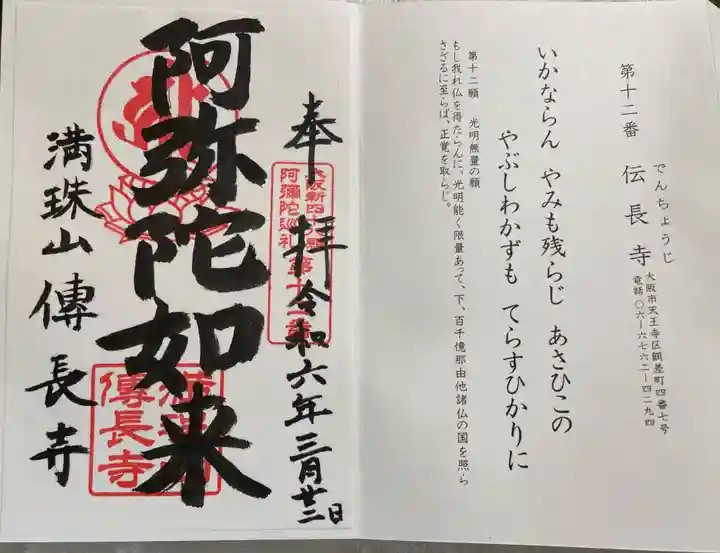 第十二番 伝長寺
でんちょうじ
大阪市天王寺区餌差町四番七号
電話〇六ー六七六二ー四二九四
いかならん やみも残らじ あさひこの
やぶしわかずも てらすひかりに
第十二願 光明無量の願
もし我れ仏を得たらんに、光明能く限量あって、下、百千億那由他諸仏の国を照ら
さざるに至らば、正覚を取らじ。
奉拝 令和六年三月廿二日
大阪新四十八願
阿彌陀巡礼
第十二番
阿弥陀如来
満珠山 傳長寺
傳長寺